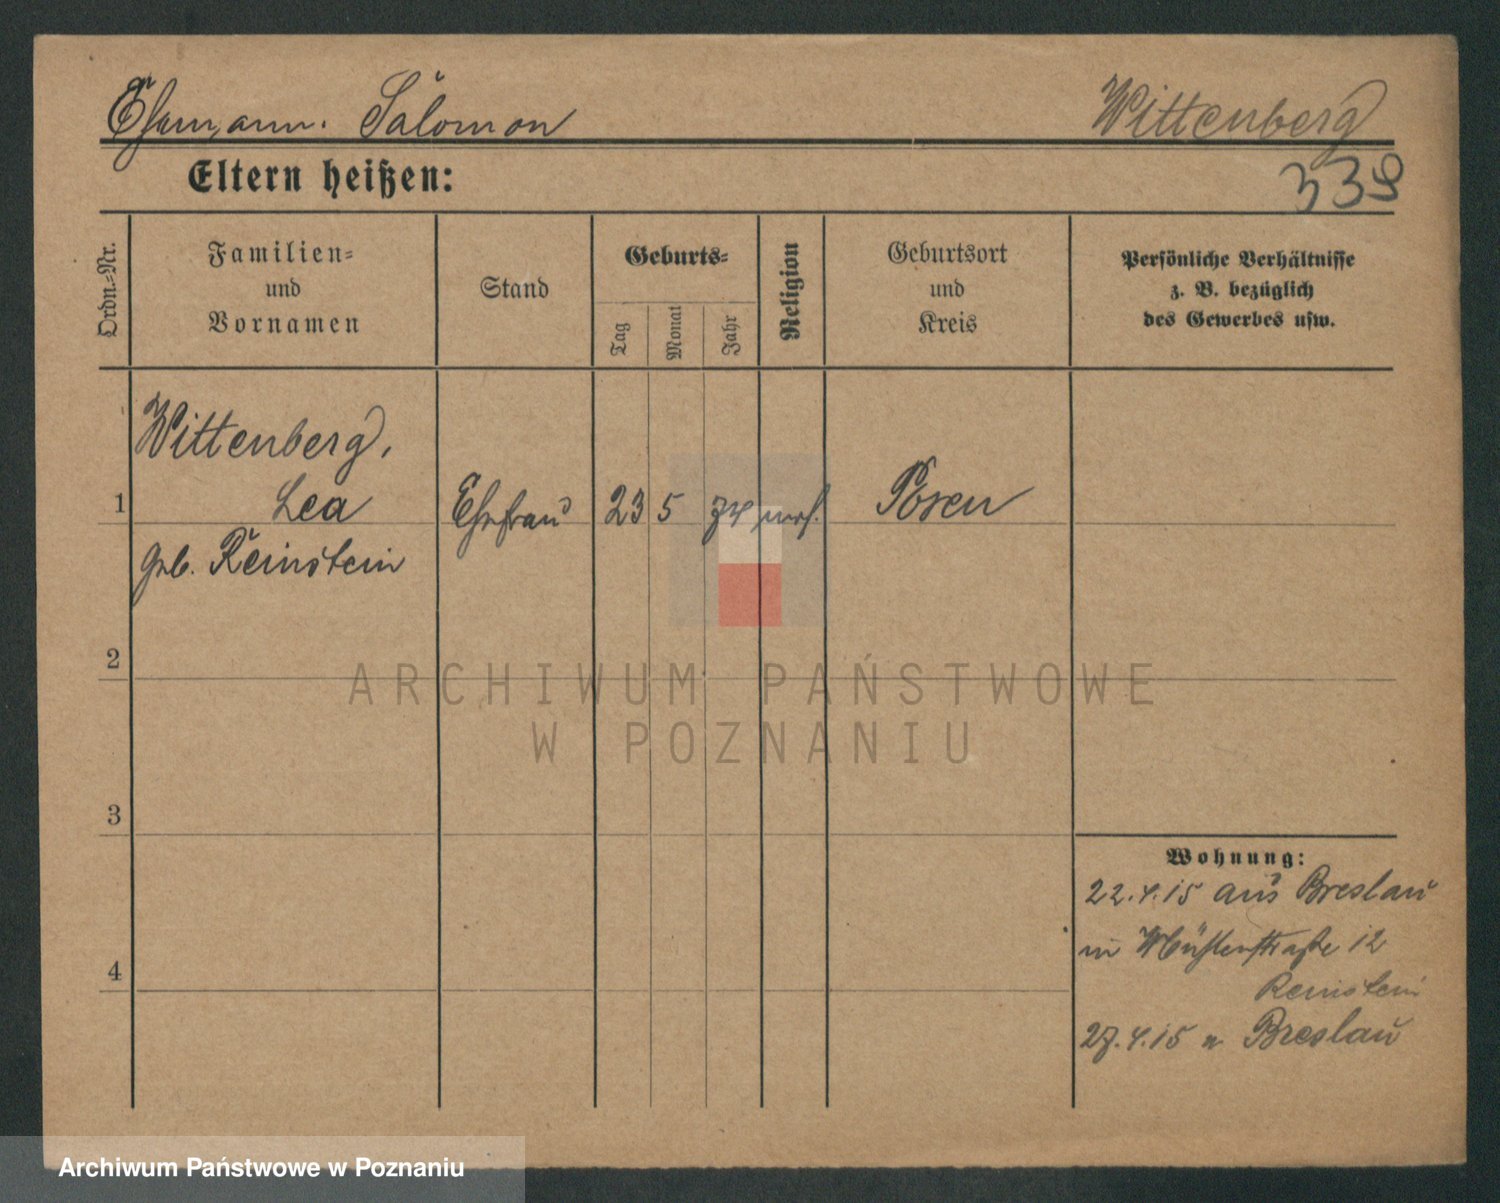 Ehemann. Salomon Wittenberg
Eltern heißen:
339
Ordn.-Nr.
Familien-
und
Vornamen
Stand
Geburts-
Tag
Monat
Jahr
Religion
Geburtsort
und
Kreis
Persönliche Verhältnisse
z. B. bezüglich
des Gewerbes usw.
Wittenberg,
1 Lea Ehefrau 23 5 mos. Posen
geb. Reinstein
2
ARCHIWUM PAŃSTWOWE
W POZNANIU
3
Wohnung:
22.4.15 aus Breslau
in Mühlenstraße 12
Reinstein
4
27.4.15 n Breslau
Archiwum Państwowe w Poznaniu